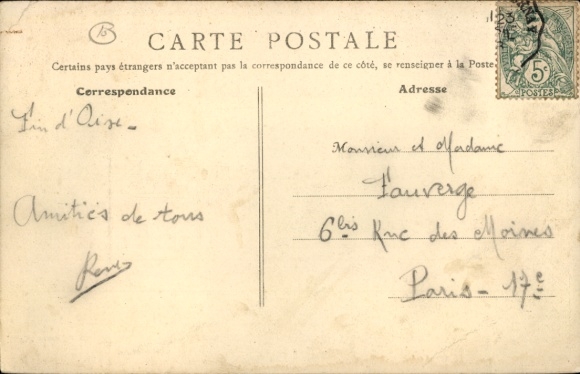 15
CARTE POSTALE
Certains pays étrangers n'acceptant pas la correspondance de ce côté, se renseigner à la Poste
Correspondance
Adresse
23
5c
POSTES
Fin d'Oise_
Amitiés de tous
René
Monsieur et Madame
Fauverge
6bis Rue des Moines
Paris - 17e